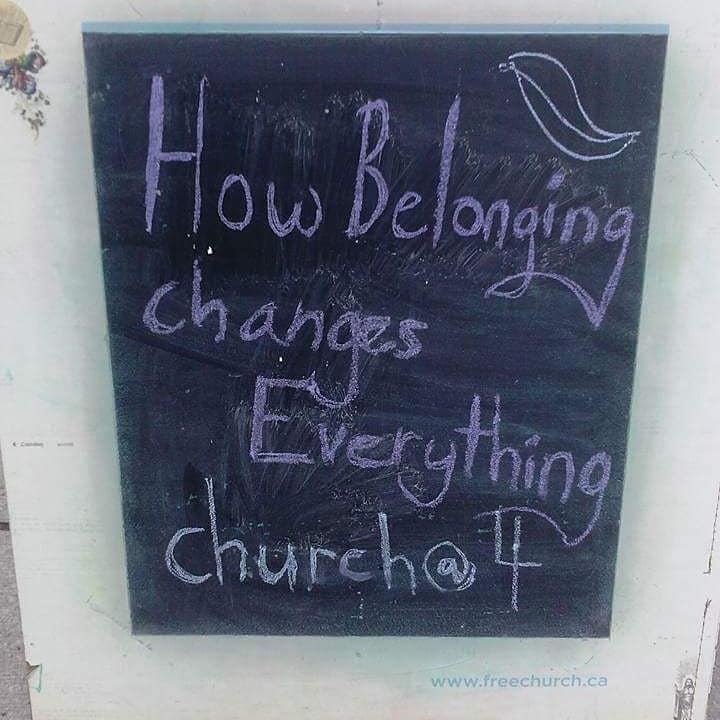 How Belonging
changes
Everything
church@4
www.freechurch.ca